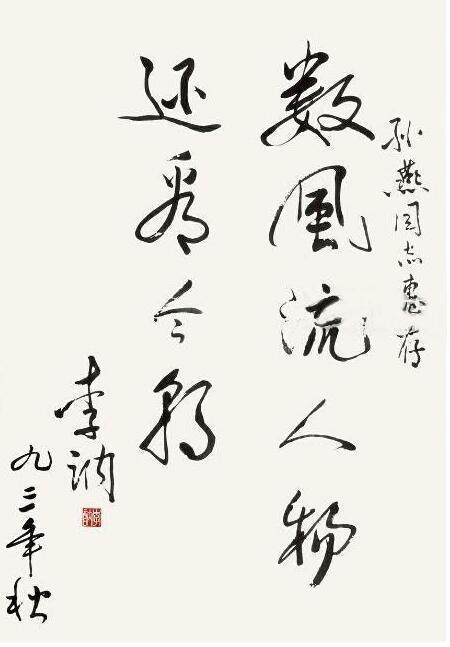 孙燕同志惠存
数風流人物
还看今朝
李讷
九三年秋